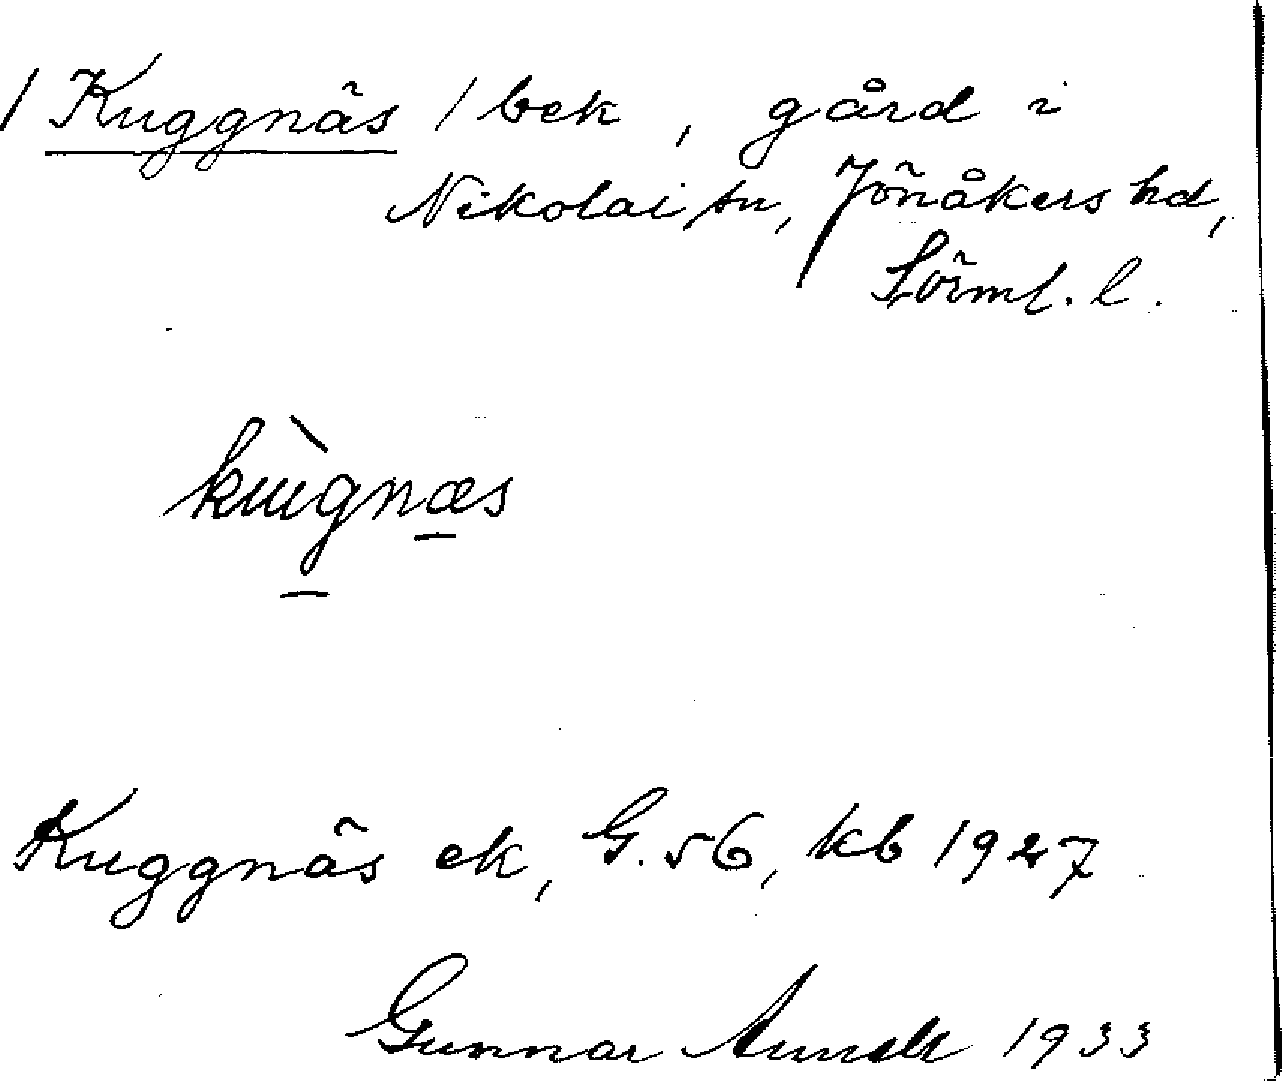 / Kuggnäs / bek, gård i
Nikolai sn, Jönåkers hd,
Sörml. l.
kùgnæs
Kuggnäs ek, G. 56, kb 1927
Gunnar 1933